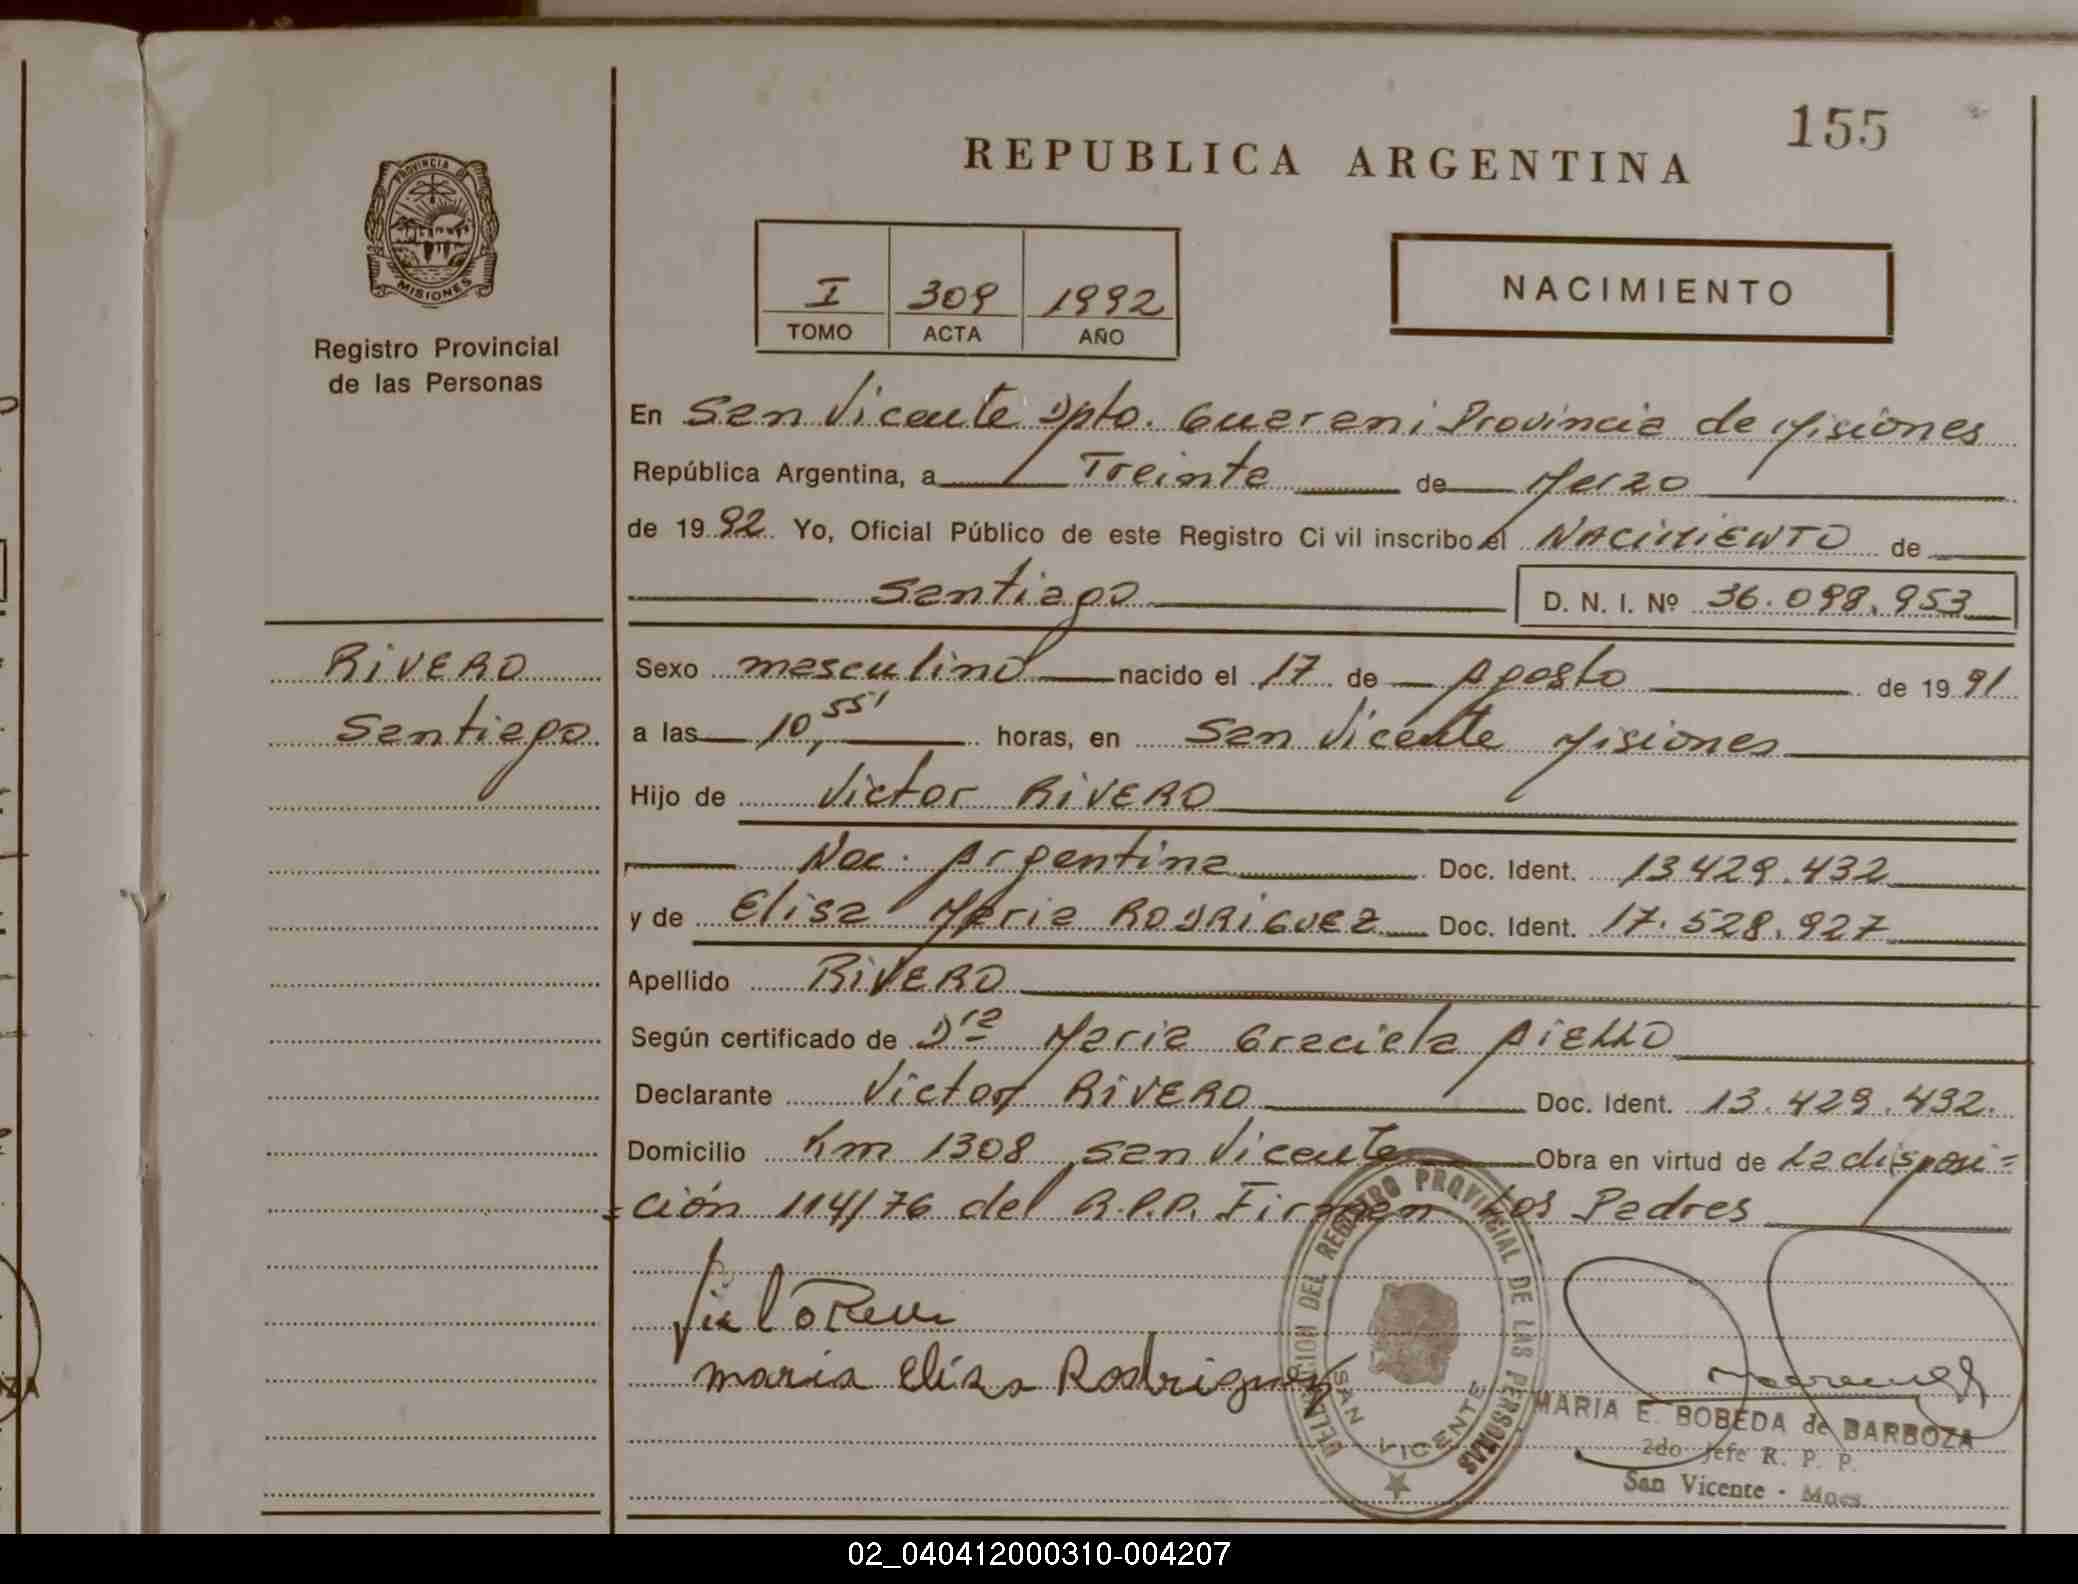 155
REPUBLICA ARGENTINA
PROVINCIA DE
MISIONES
Registro Provincial
de las Personas
I 309 1992
TOMO ACTA AÑO
NACIMIENTO
En San Vicente Dpto. Guarani Provincia de Misiones
República Argentina, a Treinta de Marzo
de 1992 Yo, Oficial Público de este Registro Civil inscribo el NACIMIENTO de
Santiago D. N. I. Nº 36.098.953
RIVERO
Santiago
Sexo masculino nacido el 17 de Agosto de 1991
a las 10,55' horas, en San Vicente Misiones
Hijo de Victor RIVERO
Nac. Argentina Doc. Ident. 13429.432
y de Elisa Maria RODRIGUEZ Doc. Ident. 17.528.927
Apellido RIVERO
Según certificado de Dra Maria Graciela AIELLO
Declarante Victor RIVERO Doc. Ident. 13.429.432.
Domicilio Km 1308 San Vicente Obra en virtud de La disposi=
=ción 114/76 del R.P.P. Firman Los Padres
maria elisa Rodriguez
DELEGACION DEL REGISTRO PROVINCIAL DE LAS PERSONAS
SAN VICENTE
MARIA E. BOBEDA de BARBOZA
2do Jefe R. P. P.
San Vicente - Mnes.
02_040412000310-004207